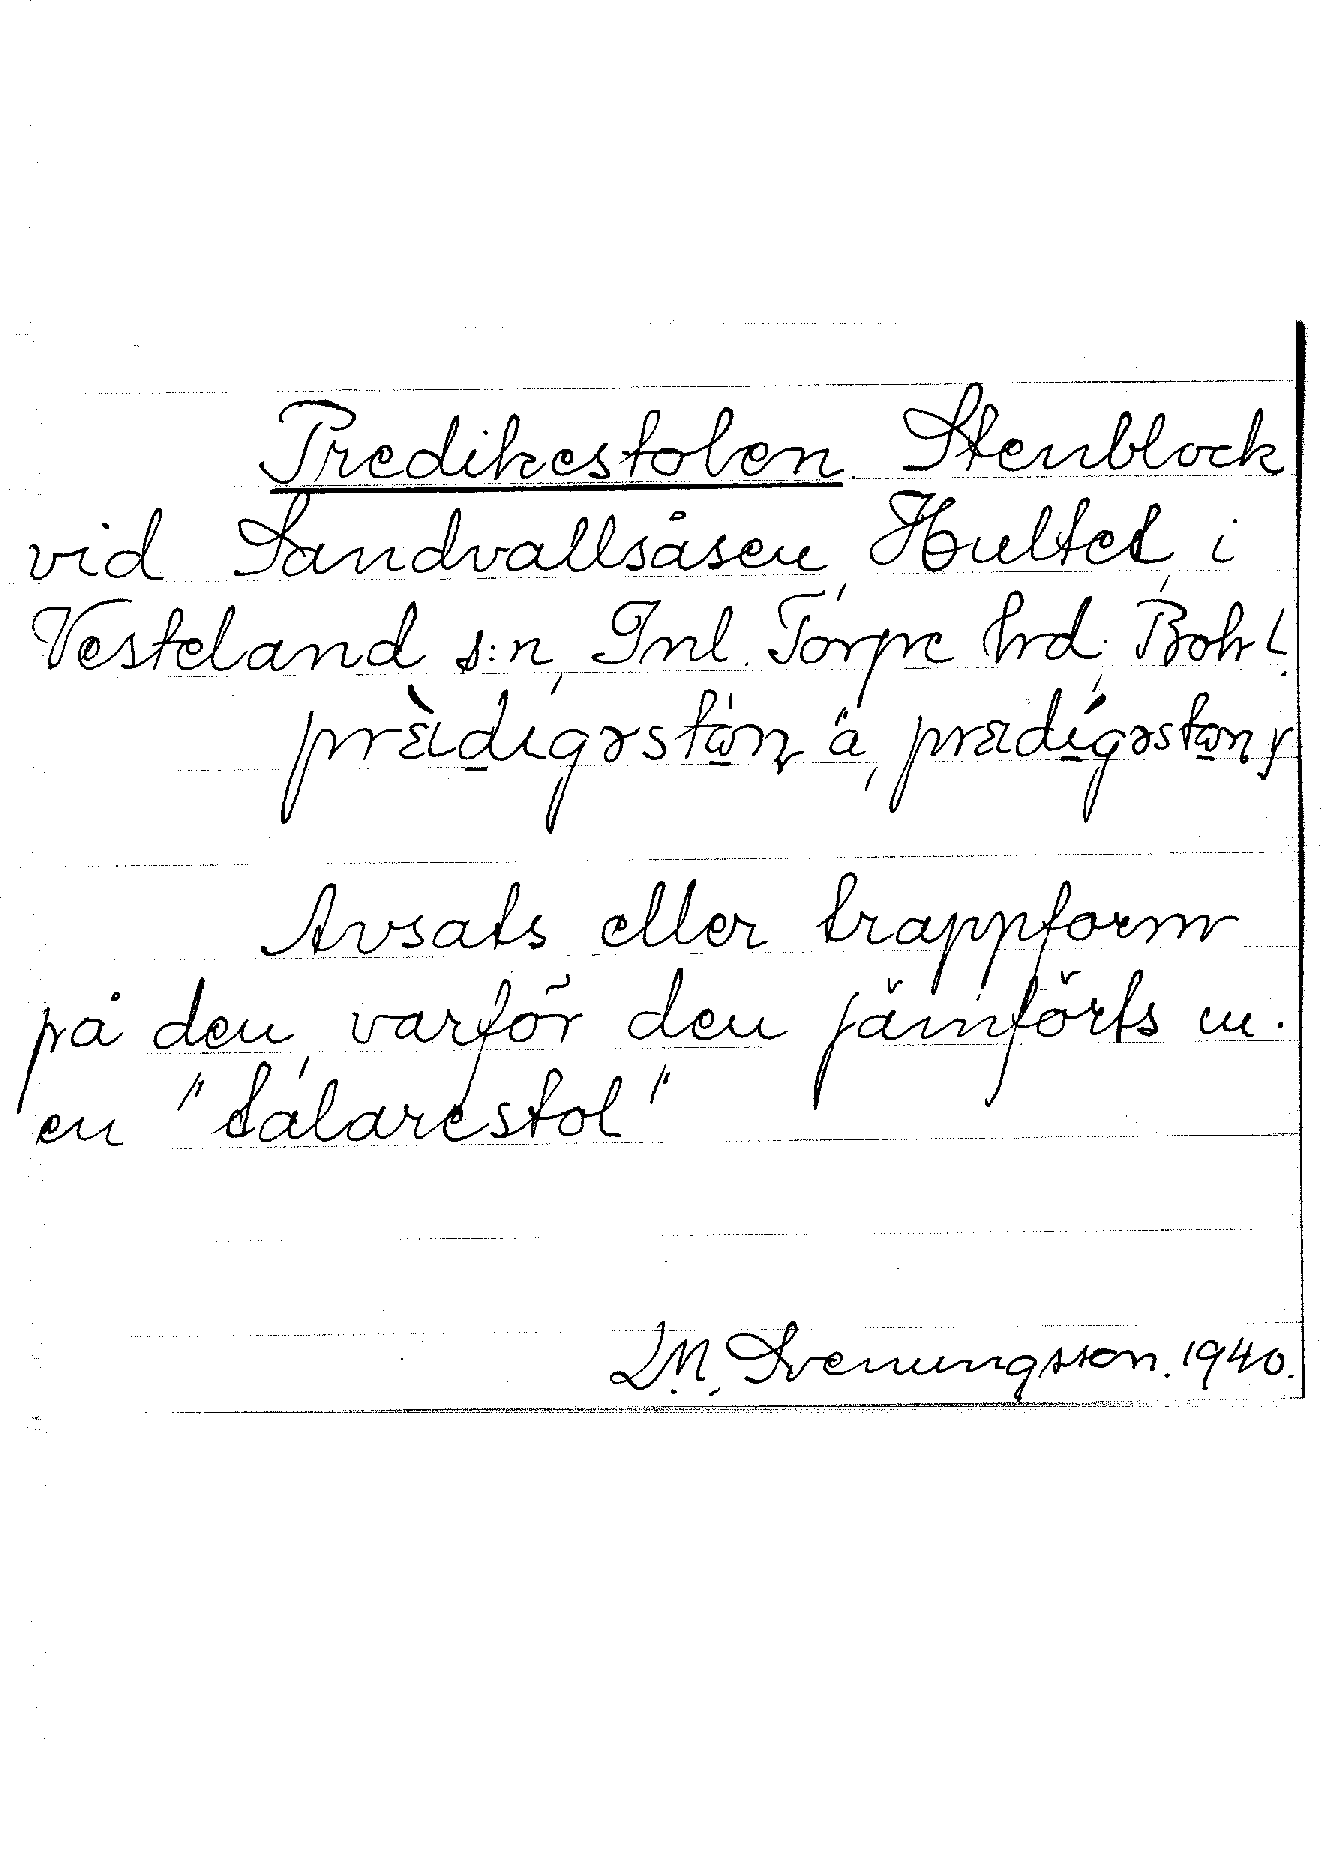 Predikestolen Stenblock
vid Sandvallsåsen, Hultet, i
Vesteland s:n, Inl. Torpe hrd, Bohl.
prèidigəstωn ä, preidígəstωn
Avsats eller trappform
på den, varför den jämförts m.
en "talarestol"
L.M. Svenungsson. 1940.